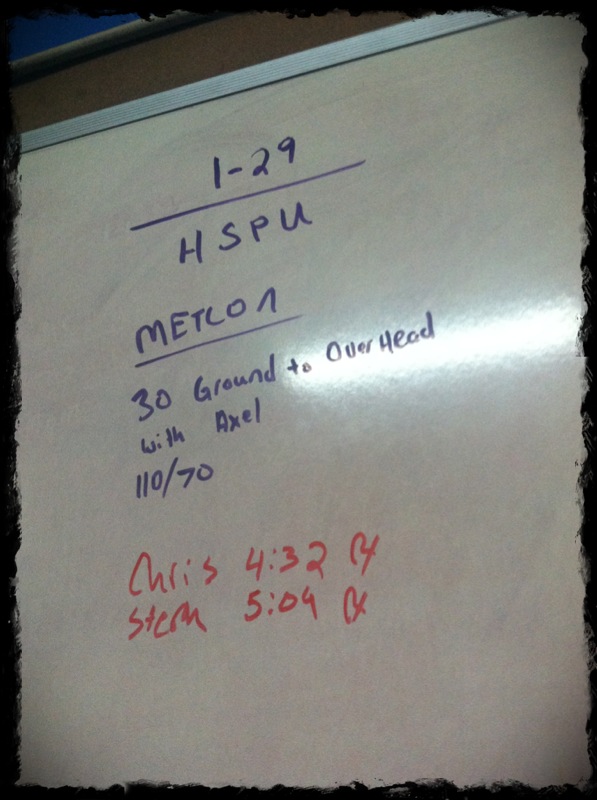 1-29
HSPU
METCON
30 Ground to OverHead
with Axel
110/70
Chris 4:32 Rx
5:04 Rx